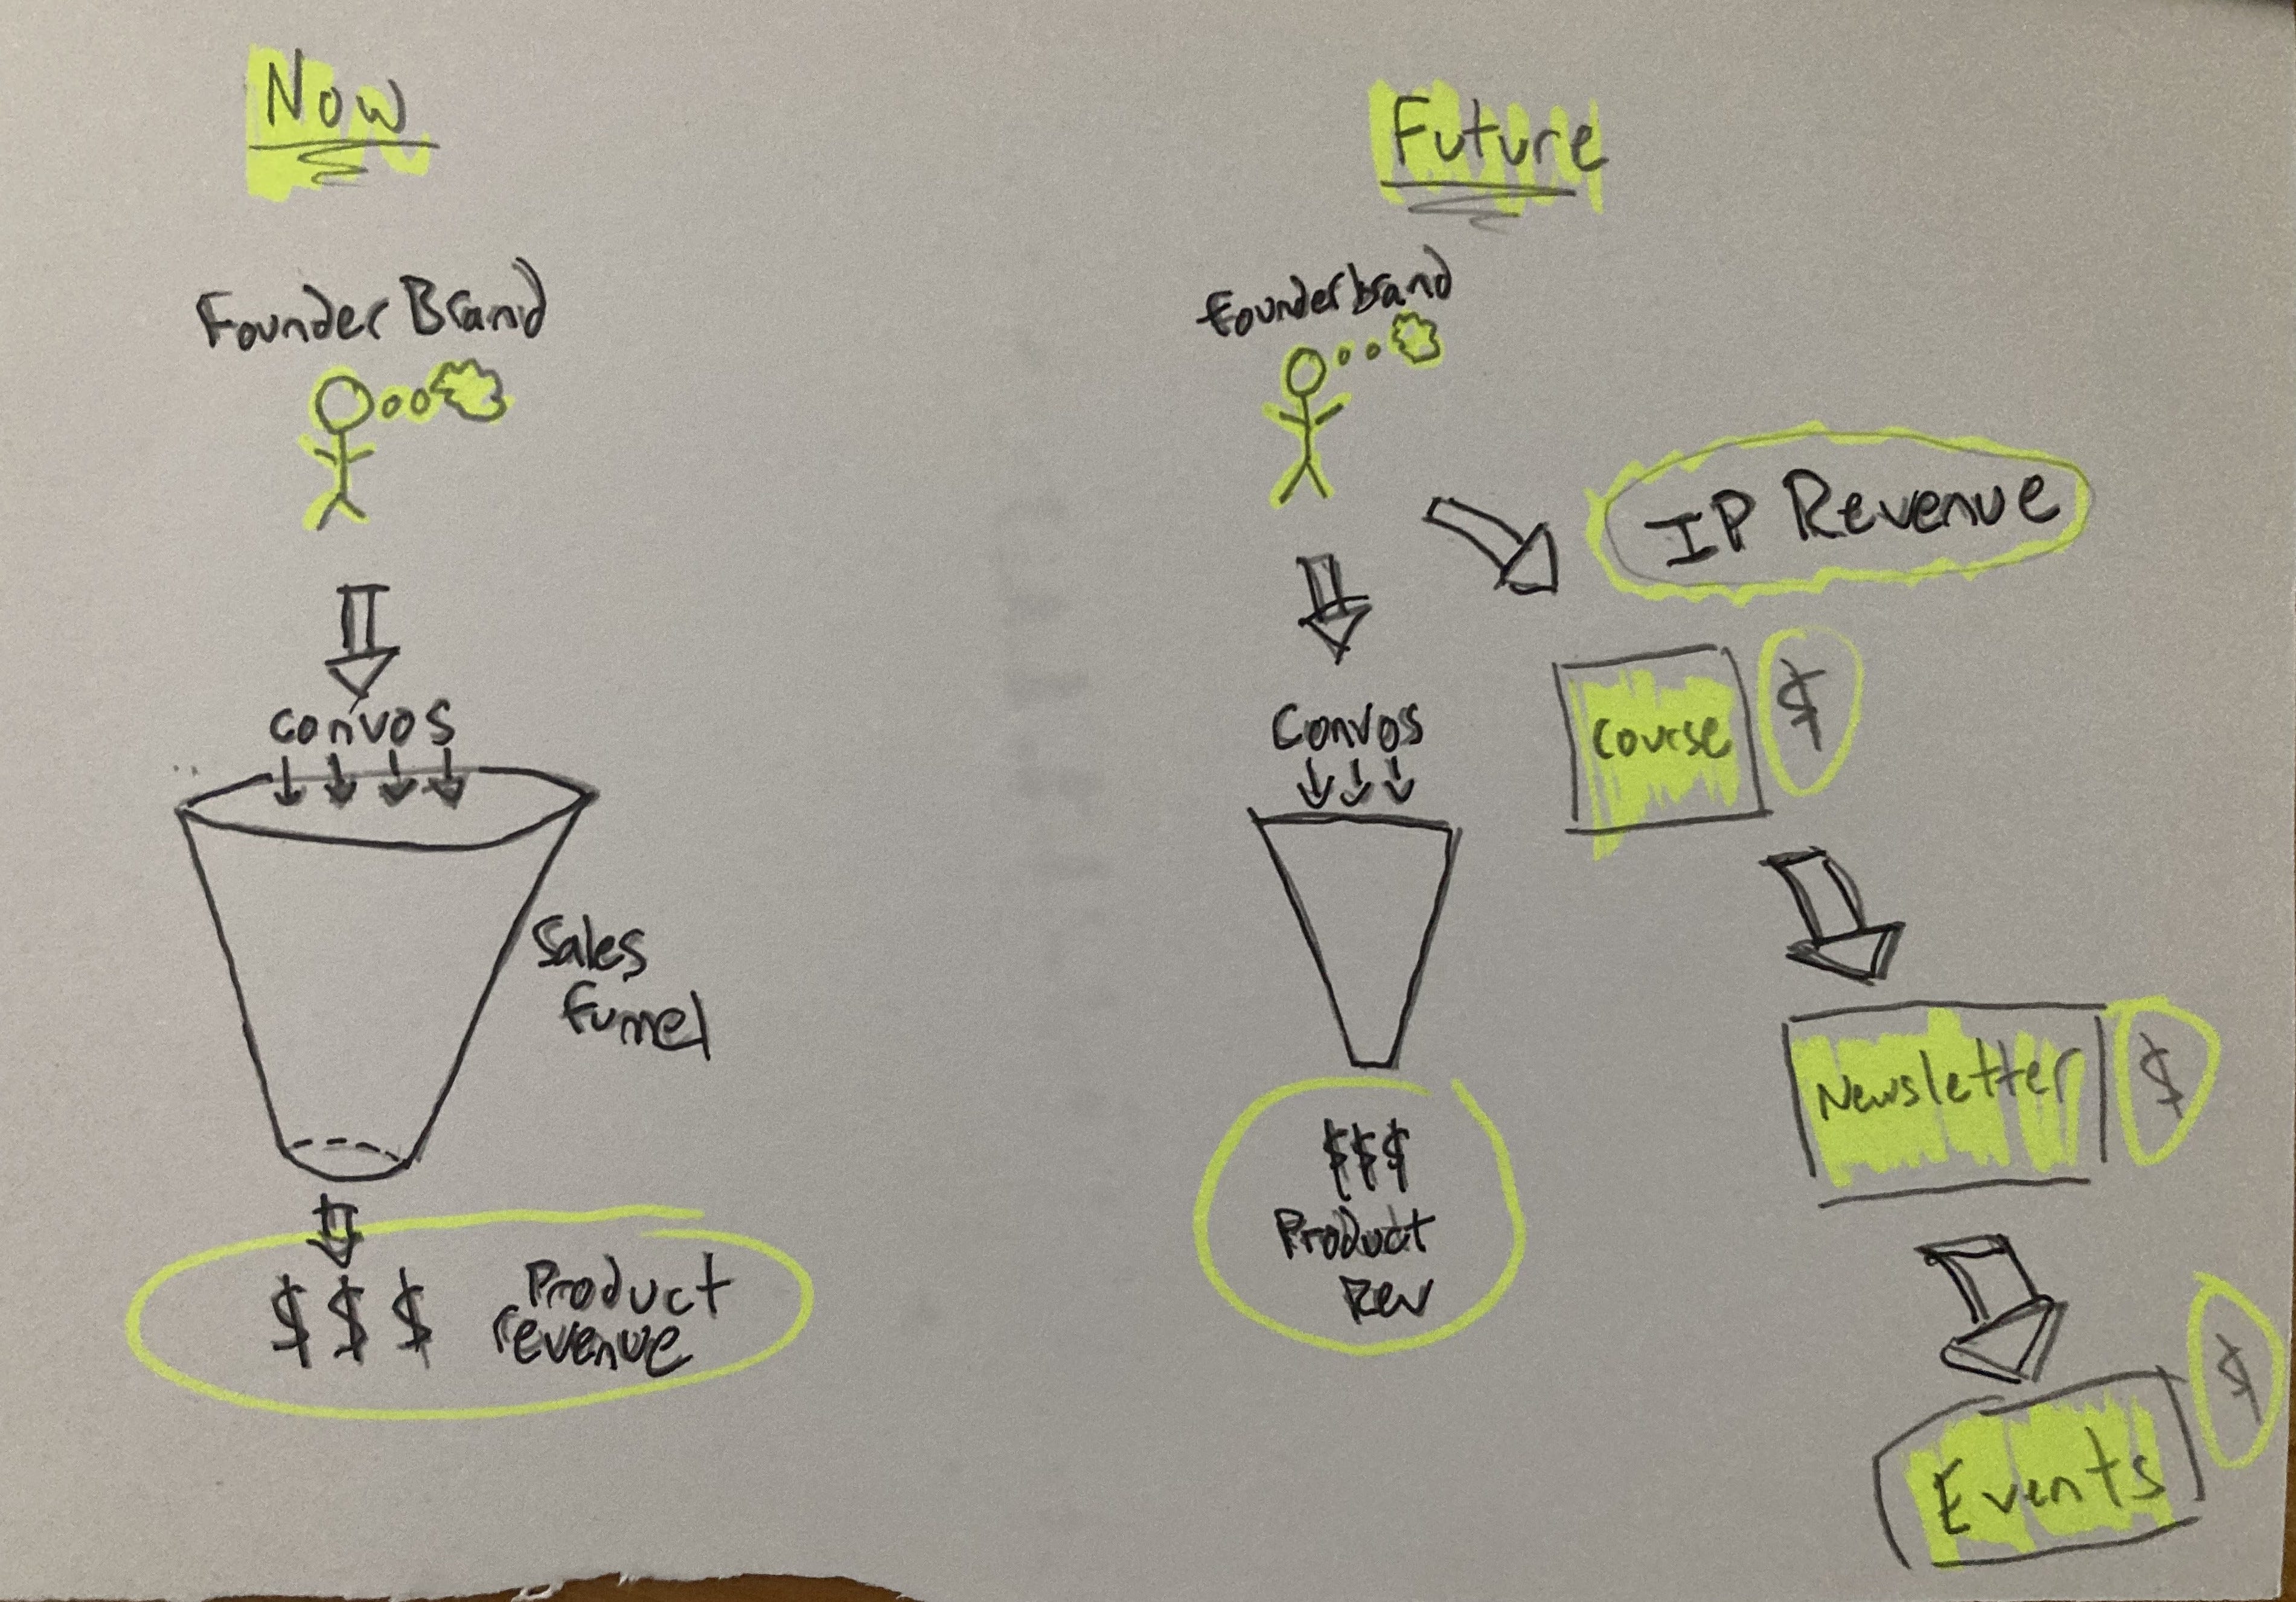 Now
Founder Brand
convos
Sales
funnel
$ $ $ Product
revenue
Future
Founderbrand
IP Revenue
Convos
course $
Newsletter $
$$$
Product
Rev
Events $